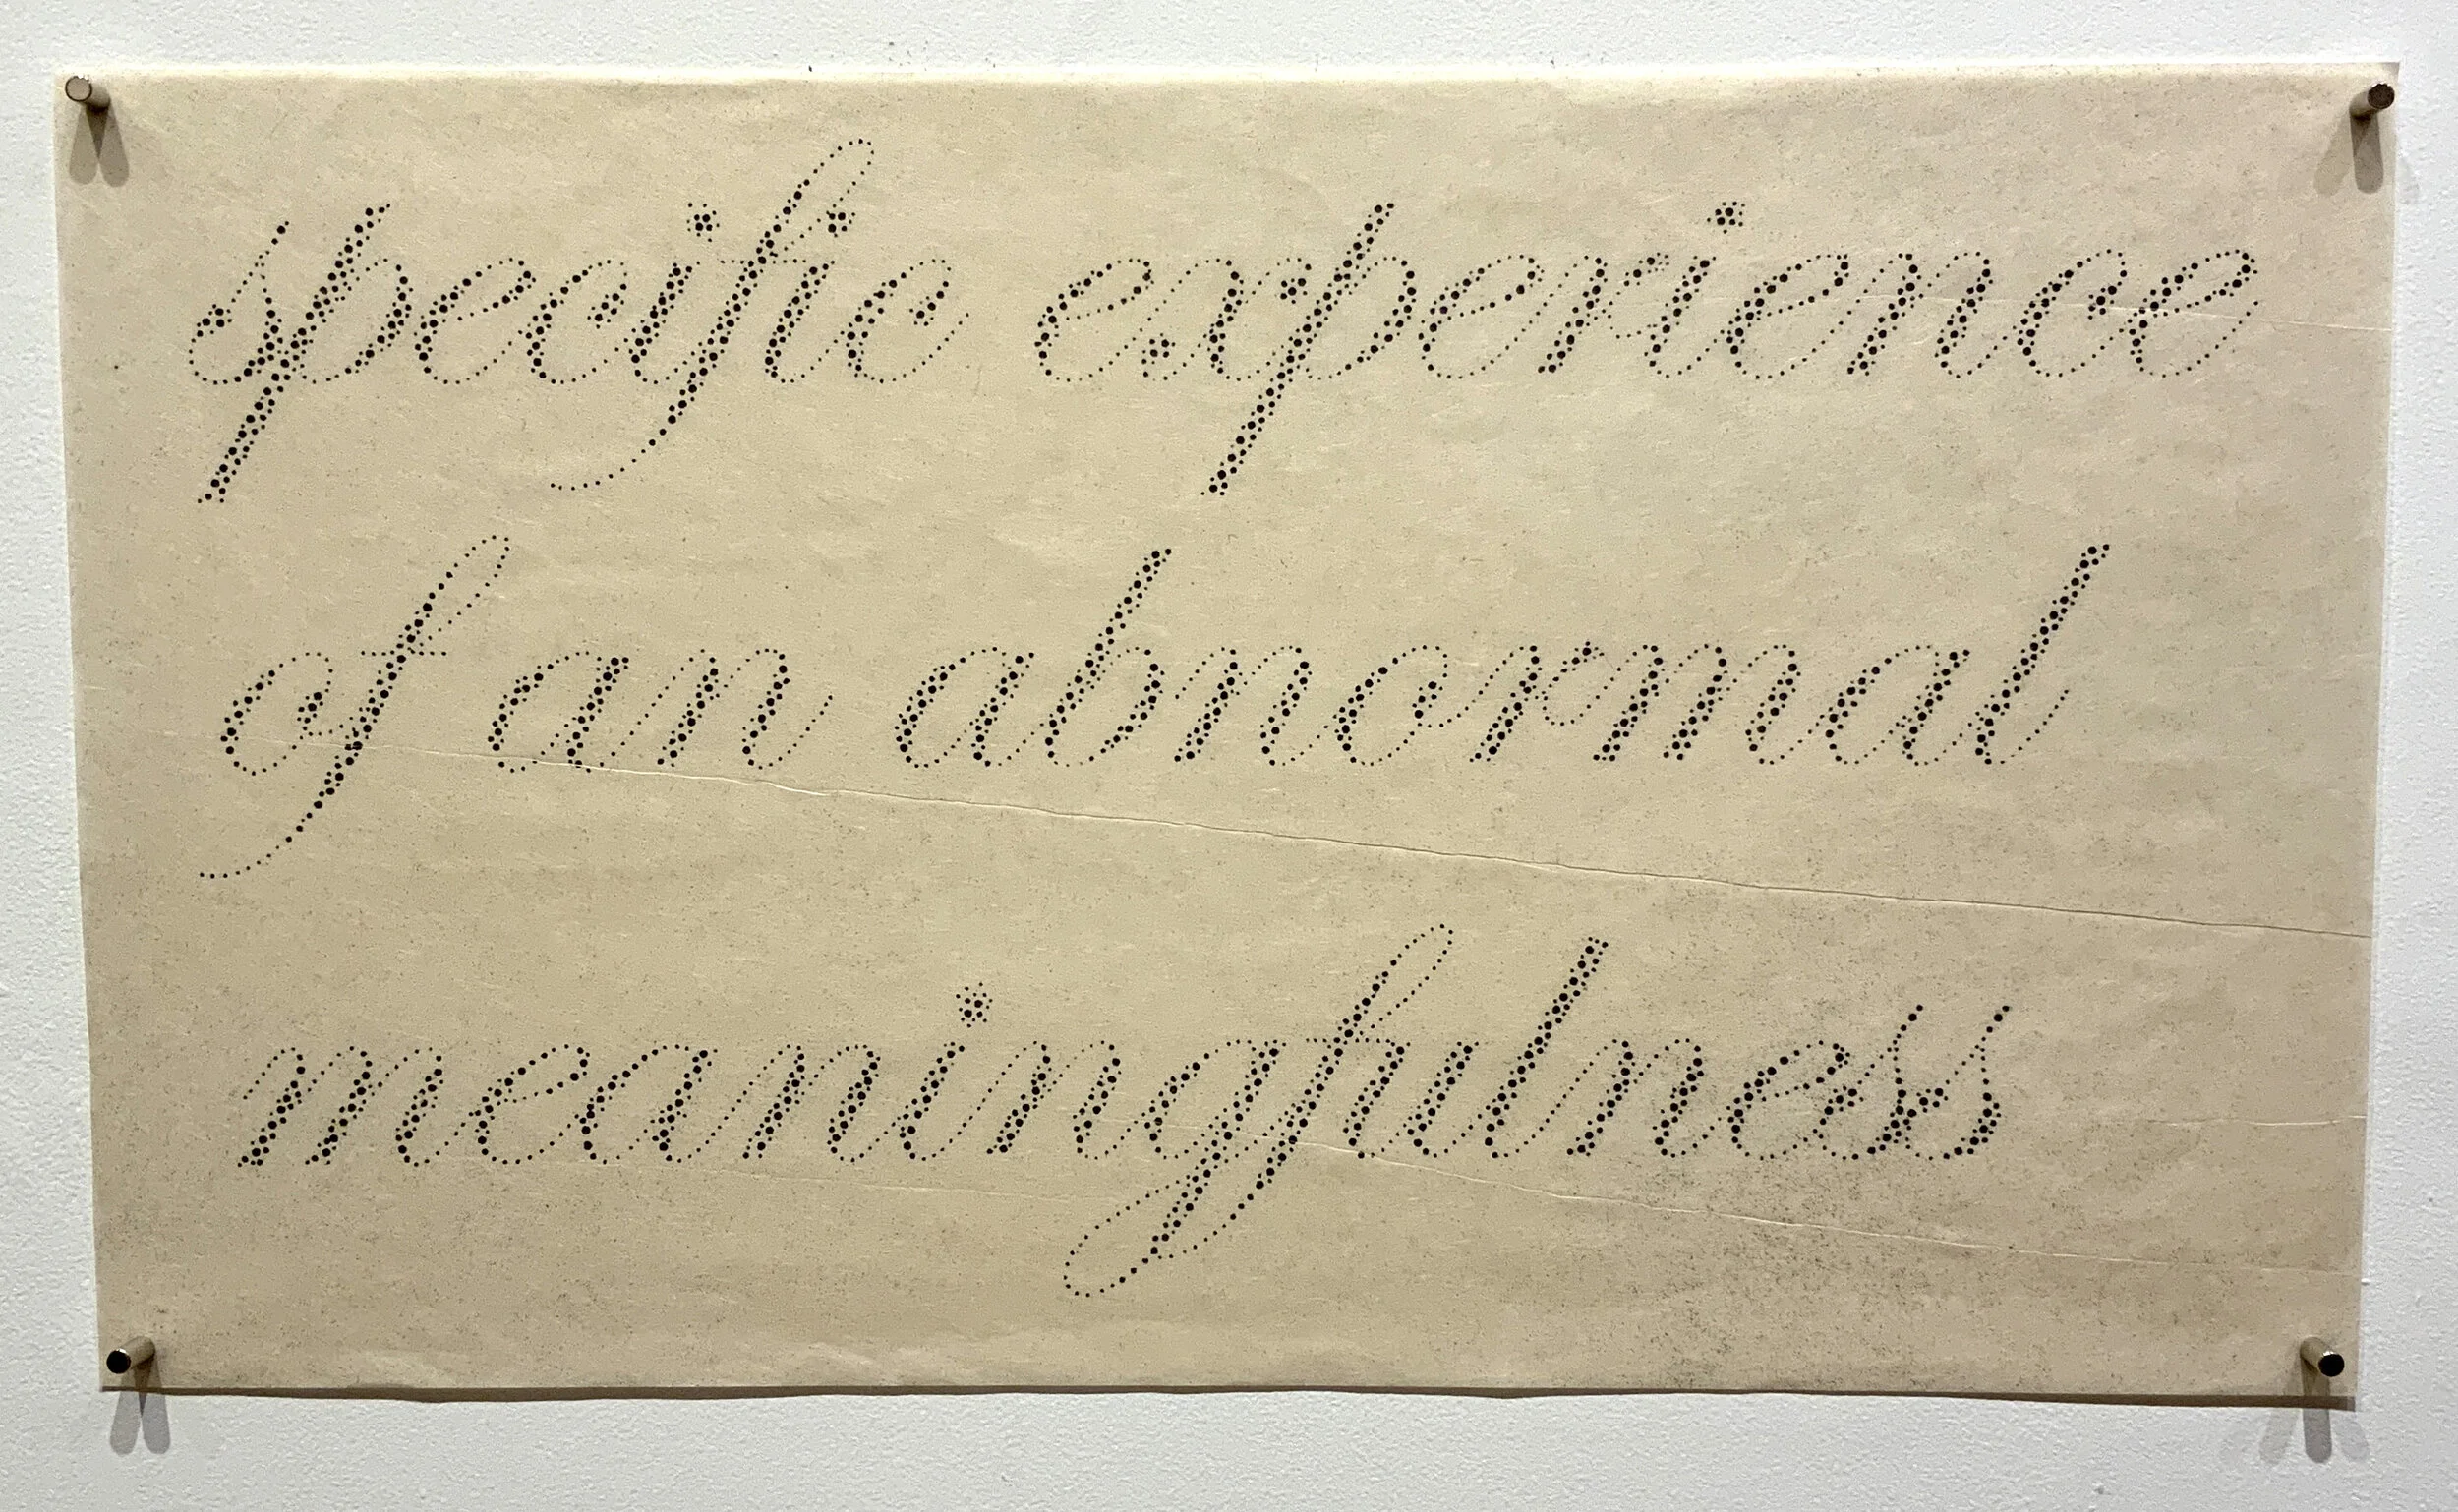 specific experience
of an abnormal
meaningfulness